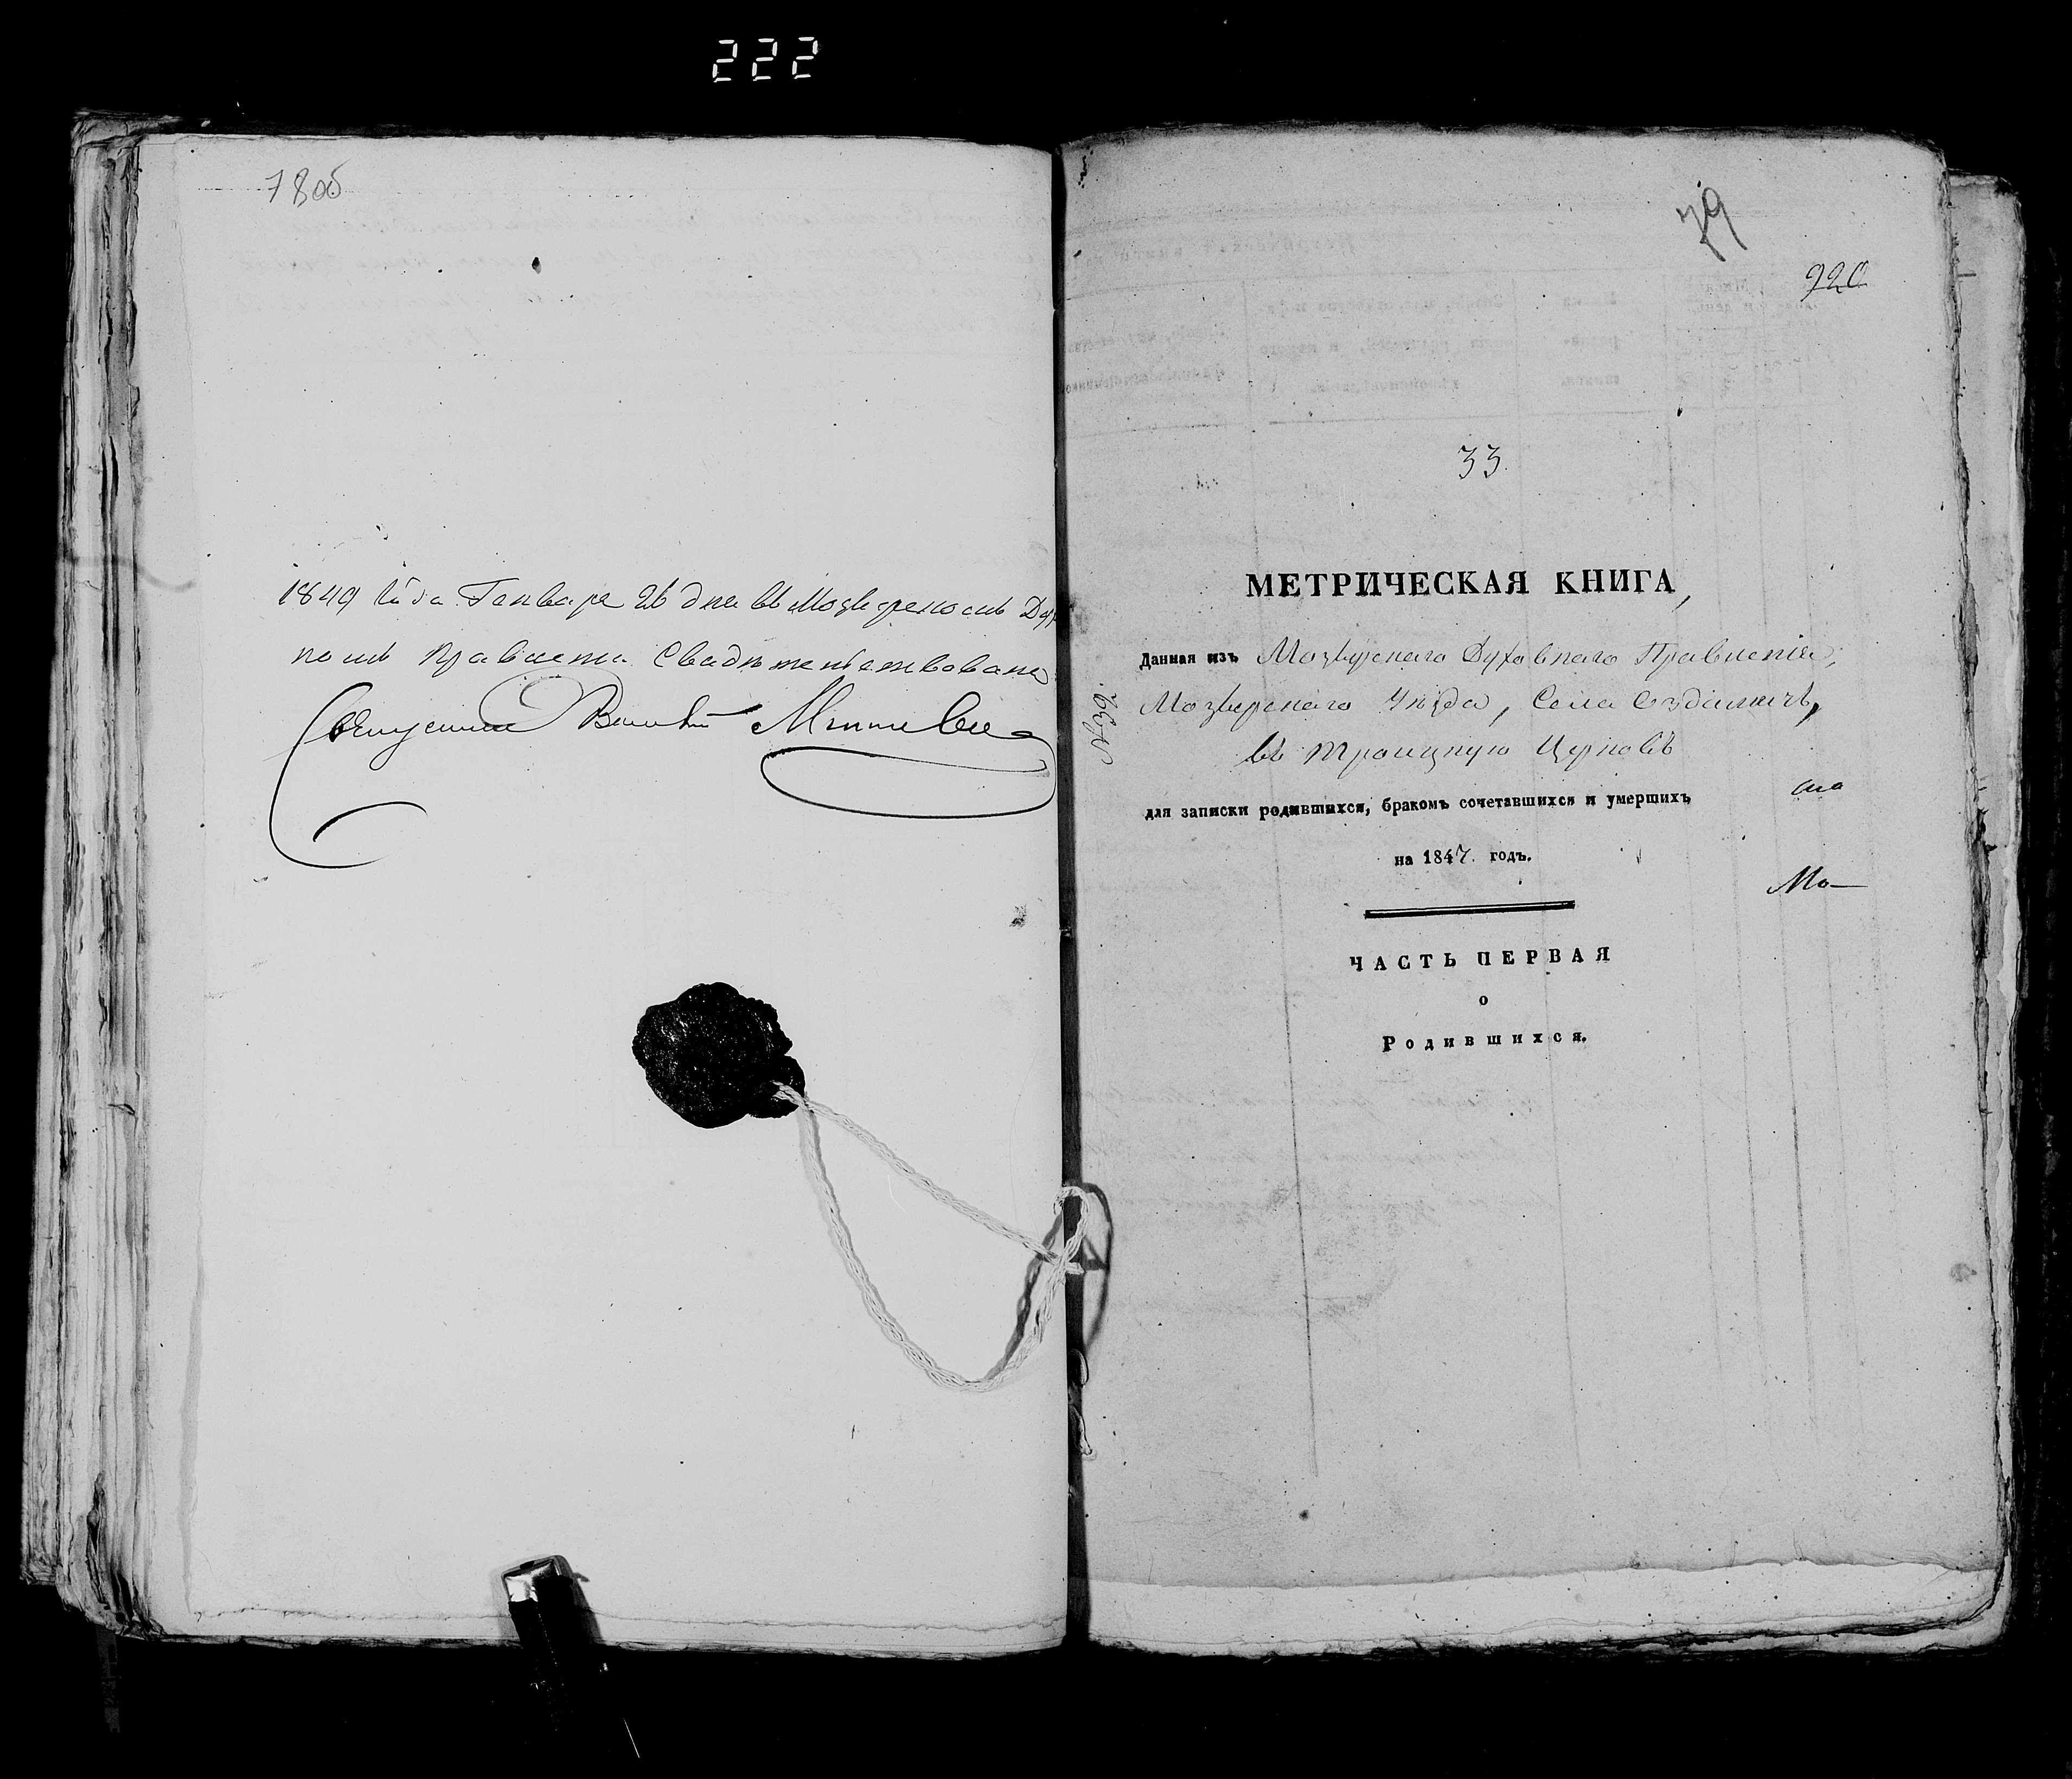 222
78об
1849 года Генваря 26 дня въ Мозырскомъ Дух
номъ Правлени Свидетельствована
Священникъ
79
920
33
МЕТРИЧЕСКАЯ КНИГА,
Данная изъ Мозырскаго Духовнаго Правленія,
Мозырскаго Уѣзда, Села
въ Троицкую Церковь
для записки родившихся, бракомъ сочетавшихся и умершихъ
на 1847. годъ.
Мо
ЧАСТЬ ПЕРВАЯ
о
Родившихся.
№39.